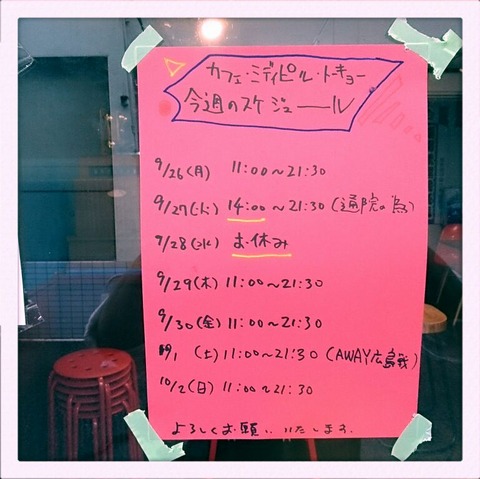 カフェ・ミディピル・トーキョー
今週のスケジュール
9/26(月) 11:00~21:30
9/27(火) 14:00~21:30(通院の為)
9/28(水) お休み
9/29(木) 11:00~21:30
9/30(金) 11:00~21:30
10/1 (土) 11:00~21:30 (AWAY広島戦)
10/2(日) 11:00~21:30
よろしくお願いいたします。